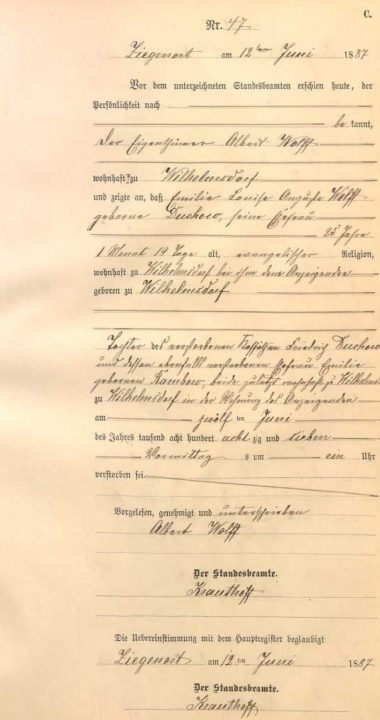 C.
Nr. 47
Ziegenort am 12ten Juni 1887
Vor dem unterzeichneten Standesbeamten erschien heute, der
Persönlichkeit nach
be kannt,
der Eigenthümer Albert Wolff
wohnhaft zu Wilhelmsdorf
und zeigte an, daß Emilie Louise Auguste Wolff
geborne Duchow, seine Ehefrau
25 Jahre
1 Monat 19 Tage alt, evangelischer Religion,
wohnhaft zu Wilhelmsdorf bei ihm dem Anzeigenden
geboren zu Wilhelmsdorf
Tochter des verstorbenen Kossäthen Friedrich Duchow
und dessen ebenfalls verstorbenen Ehefrau Emilie
gebornen Rambow, beide zuletzt wohnhaft zu Wilhelms
zu Wilhelmsdorf in der Wohnung des Anzeigenden
am zwölften Juni
des Jahres tausend acht hundert acht zig und sieben
Vormittags um ein Uhr
verstorben sei.
Vorgelesen, genehmigt und unterschrieben
Albert Wolff
Der Standesbeamte.
Krauthoff
Die Uebereinstimmung mit dem Hauptregister beglaubigt
Ziegenort am 12ten Juni 1887.
Der Standesbeamte.
Krauthoff